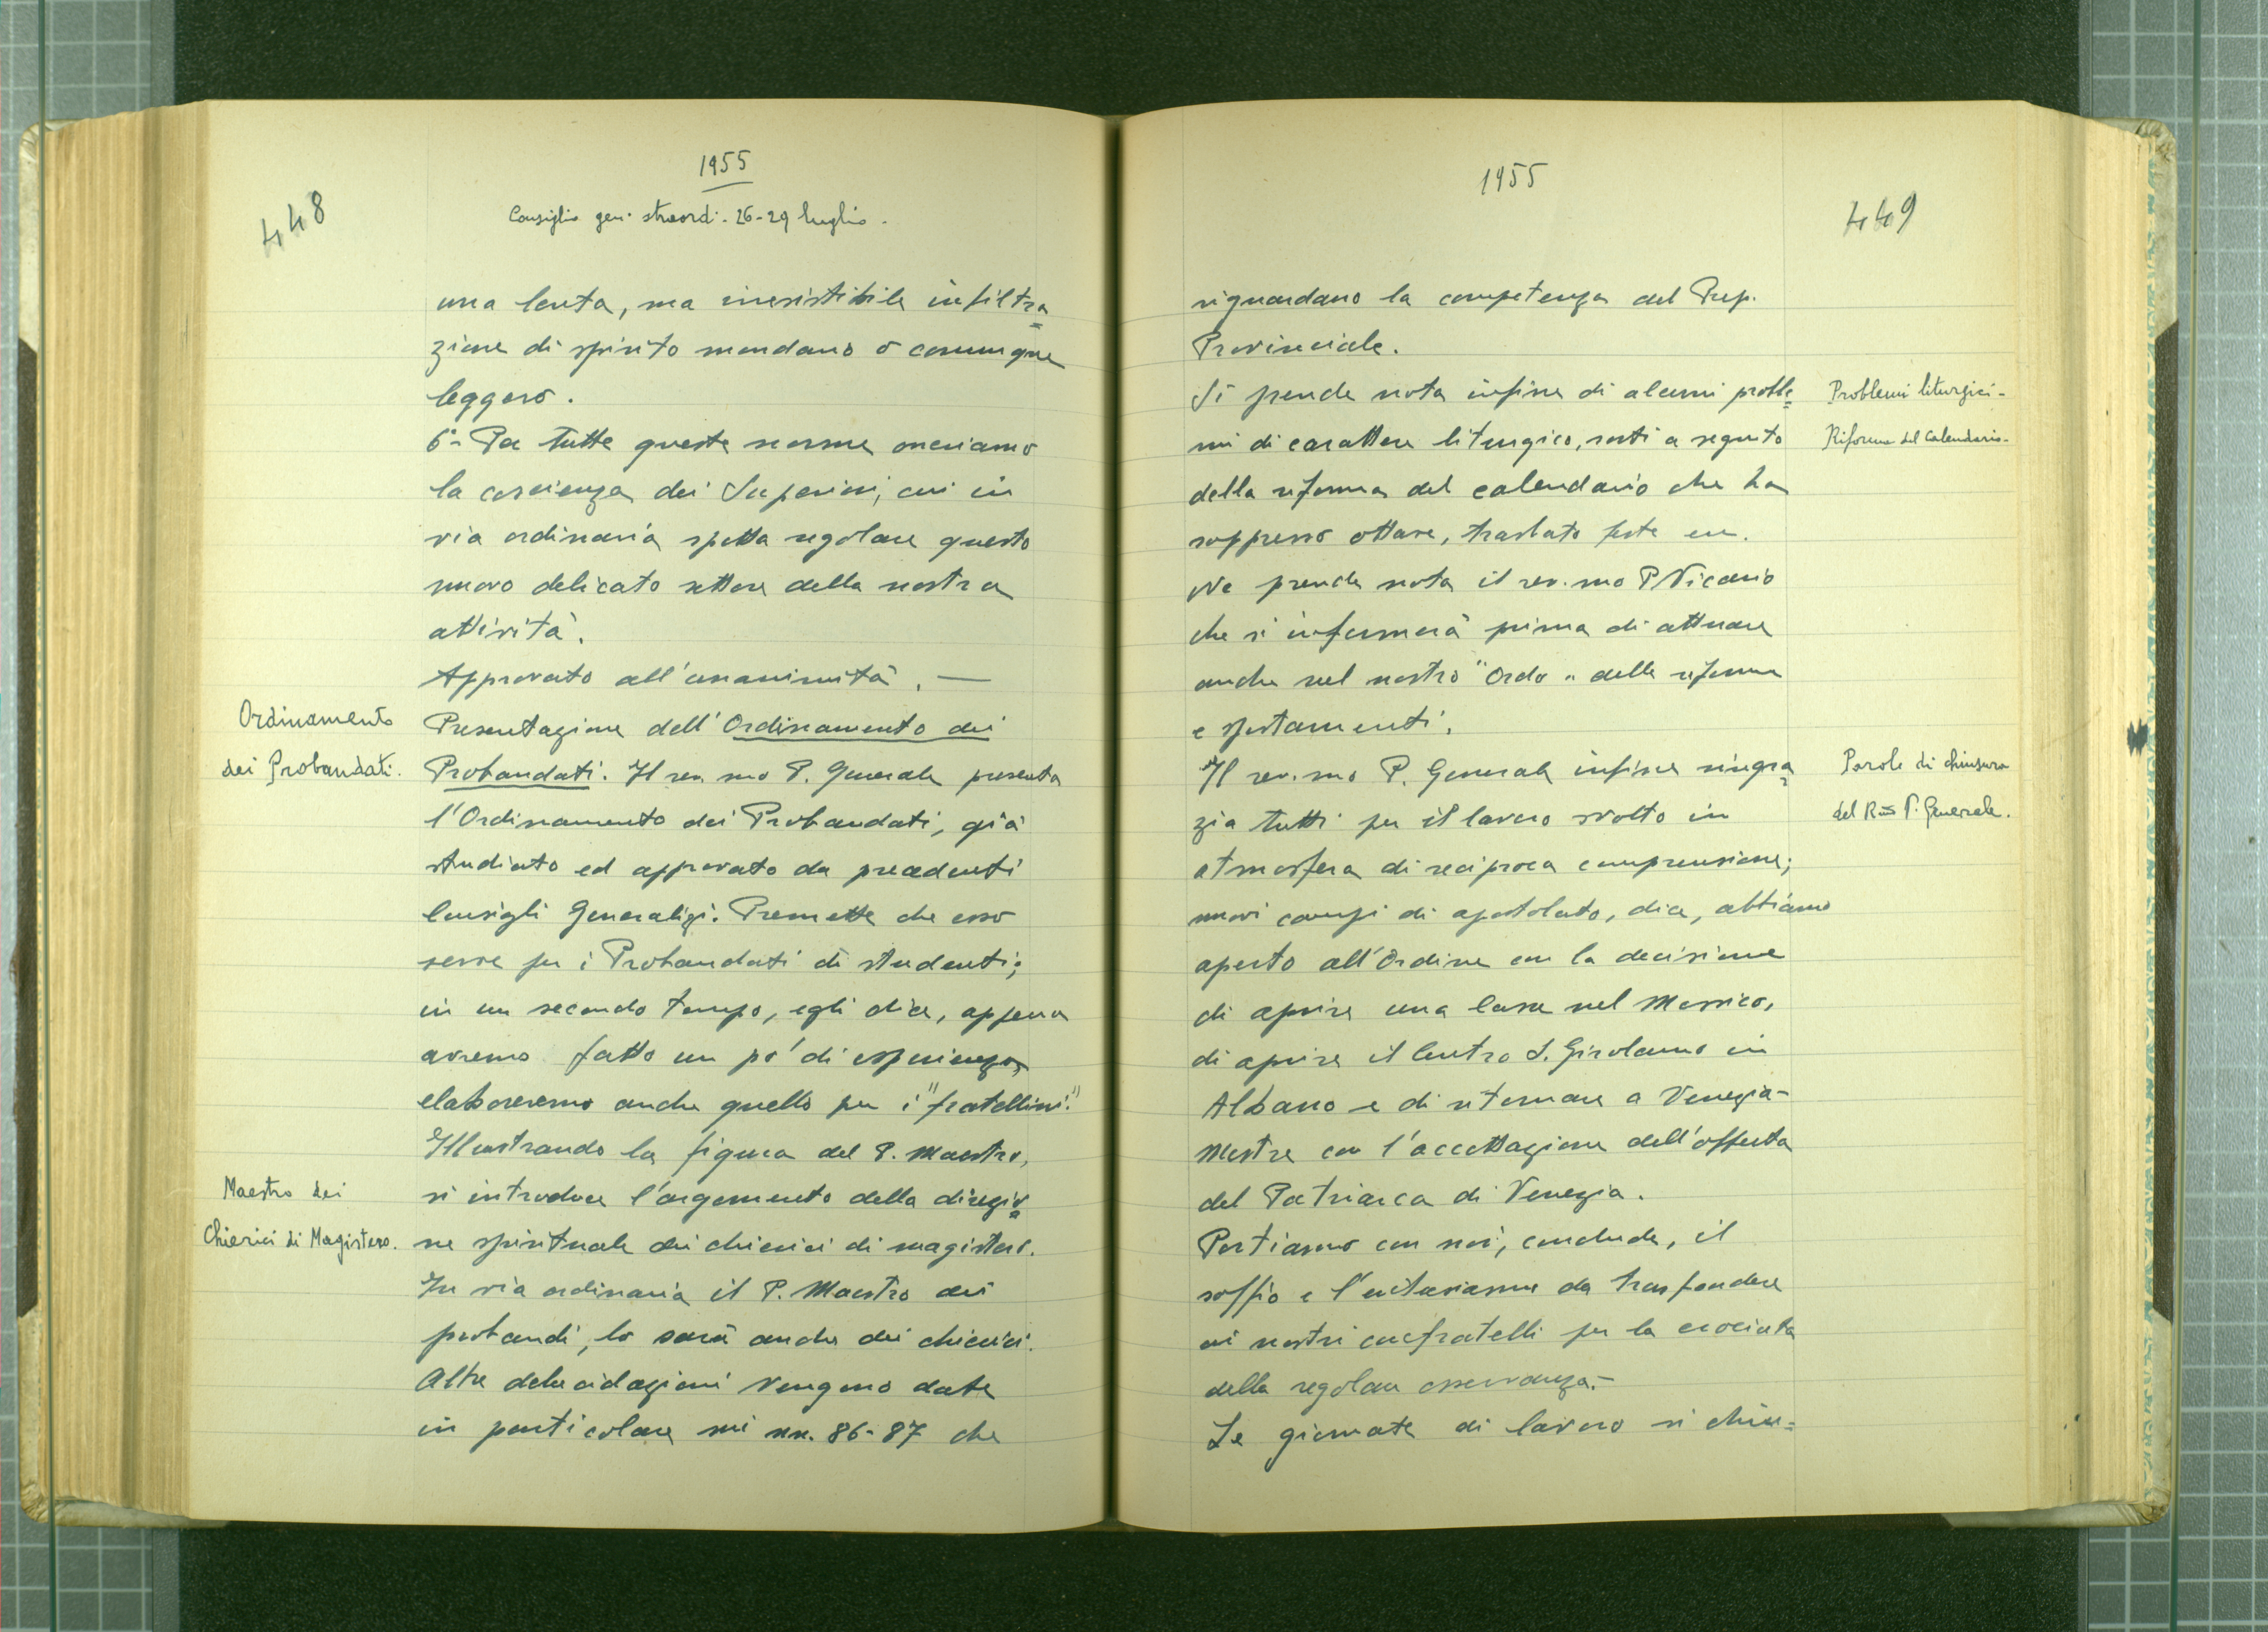 448
1955
Consiglio gen. straord. 26-29 luglio.
una lenta, ma irresistibile infiltra=
zione di spirito mondano o comunque
leggero.
6°- Per tutte queste norme oneriamo
la coscienza dei Superiori, cui in
via ordinaria spetta regolare questo
nuovo delicato settore della nostra
attività.
Approvato all'unanimità. —
Ordinamento
dei Probandati.
Presentazione dell'Ordinamento dei
Probandati. Il rev.mo P. Generale presenta
l'Ordinamento dei Probandati, già
studiato ed approvato da precedenti
Consigli Generalizi. Premette che esso
serve per i Probandati di studenti;
in un secondo tempo, egli dice, appena
avremo fatto un po' di esperienza,
elaboreremo anche quello per i "fratellini."
Illustrando la figura del P. Maestro,
Maestro dei
Chierici di Magistero.
si introduce l'argomento della direzio=
ne spirituale dei chierici di magistero.
In via ordinaria il P. Maestro dei
probandi, lo sarà anche dei chierici.
Altre delucidazioni vengono date
in particolare sui nn. 86-87 che
1955
449
riguardano la competenza del Prep.
Provinciale.
Problemi liturgici-
Riforma del Calendario-
Si prende nota infine di alcuni proble=
mi di carattere liturgico, sorti a seguito
della riforma del calendario che ha
soppresso ottave, traslato feste ecc.
Ne prende nota il rev.mo P. Vicario
che si informerà prima di attuare
anche nel nostro "Ordo" delle riforme
e spostamenti.
Parole di chiusura
del Rm̃o P. Generale.
Il rev.mo P. Generale infine ringra=
zia tutti per il lavoro svolto in
atmosfera di reciproca comprensione;
nuovi campi di apostolato, dice, abbiamo
aperto all'Ordine con la decisione
di aprire una Casa nel Messico,
di aprire il Centro S. Girolamo in
Albano e di ritornare a Venezia-
Mestre con l'accettazione dell'offerta
del Patriarca di Venezia.
Portiamo con noi, conclude, il
soffio e l'entusiasmo da trasfondere
ai nostri confratelli per la crociata
della regolare osservanza.-
Le giornate di lavoro si chiu=